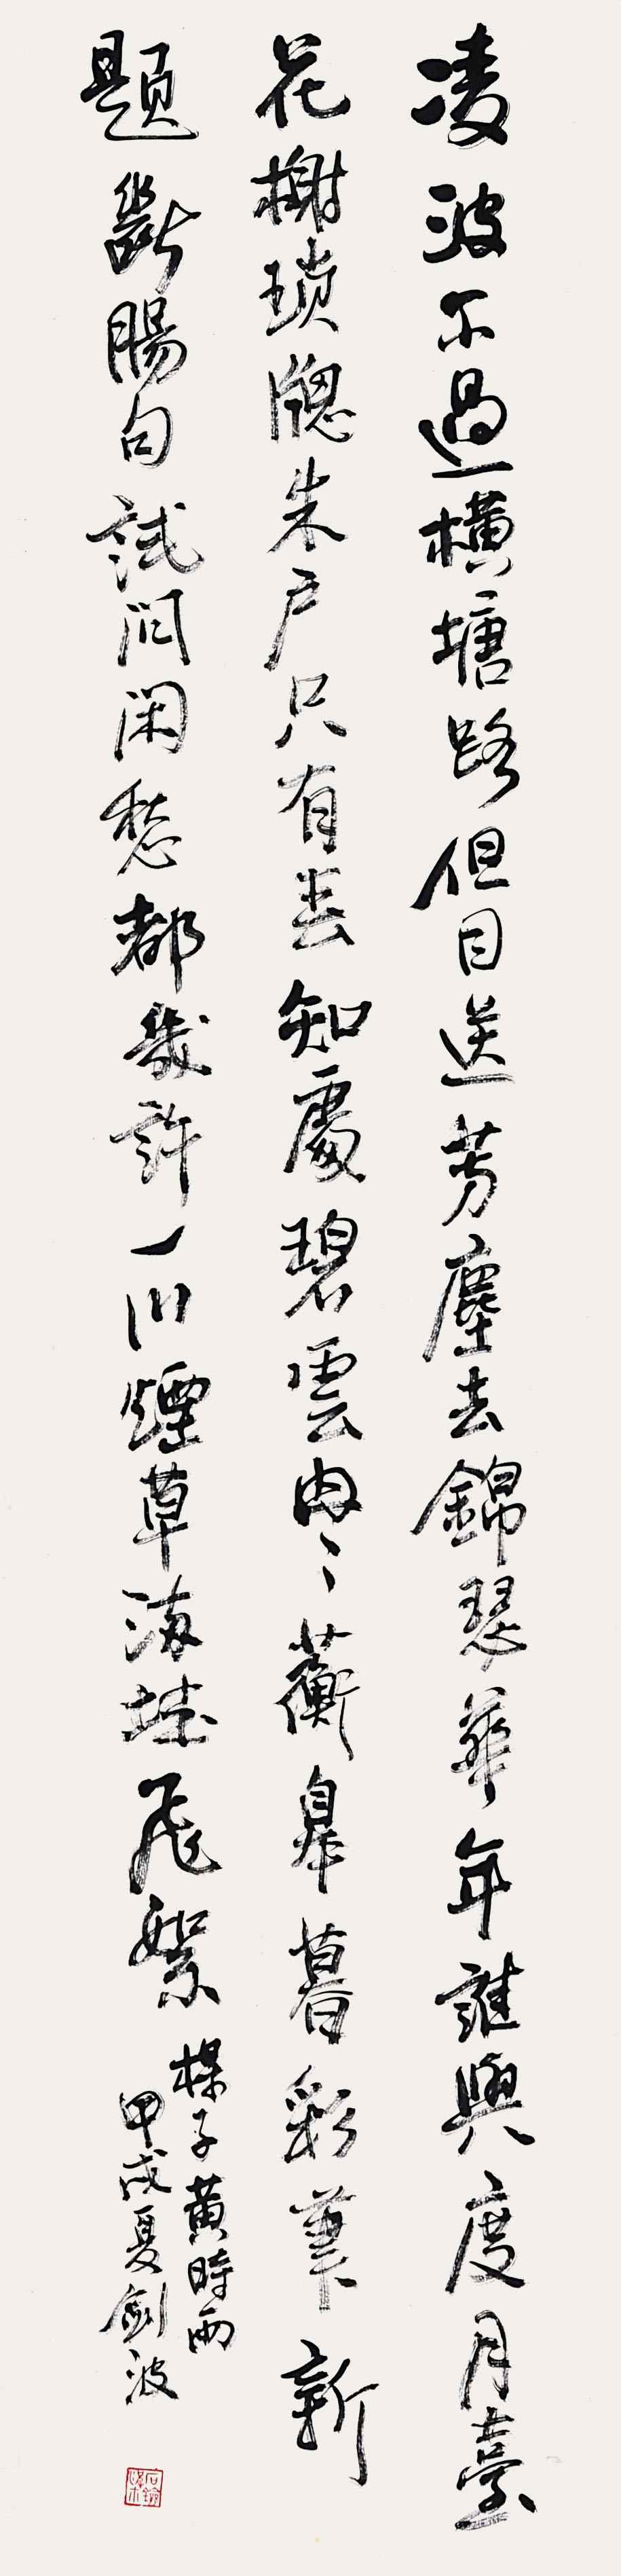 凌波不過横塘路但目送芳塵去錦瑟華年誰與度月臺
花榭瑣牎朱戶只有春知處碧雲冉〻蘅皋暮彩筆新
題斷腸句試問閑愁都幾許一川煙草滿城飛絮
梅子黄時雨
甲戌夏劍波